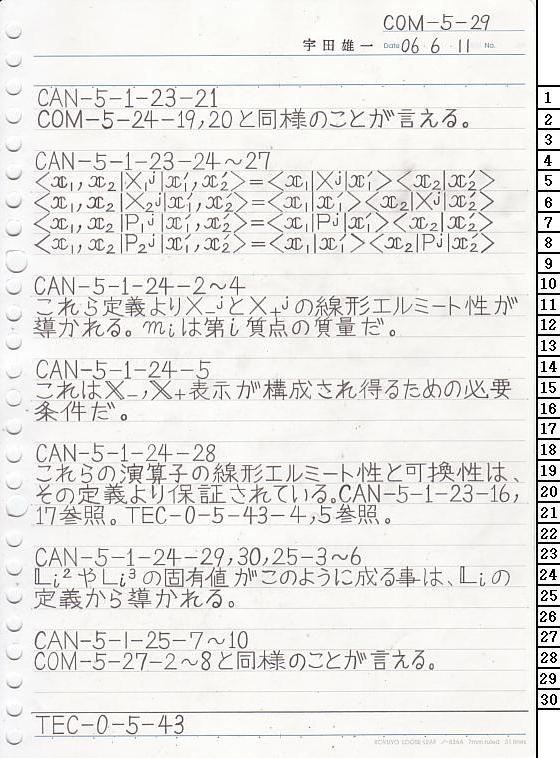 COM-5-29
宇田雄一 Date 06・6・11 No.
CAN-5-1-23-21
COM-5-24-19,20と同様のことが言える。
CAN-5-1-23-24～27
<x₁,x₂|X₁ʲ|x₁′,x₂′>=<x₁|Xʲ|x₁′><x₂|x₂′>
<x₁,x₂|X₂ʲ|x₁′,x₂′>=<x₁|x₁′><x₂|Xʲ|x₂′>
<x₁,x₂|P₁ʲ|x₁′,x₂′>=<x₁|Pʲ|x₁′><x₂|x₂′>
<x₁,x₂|P₂ʲ|x₁′,x₂′>=<x₁|x₁′><x₂|Pʲ|x₂′>
CAN-5-1-24-2～4
これら定義よりX₋ʲとX₊ʲの線形エルミート性が
導かれる。miは第i質点の質量だ。
CAN-5-1-24-5
これは𝕏₋,𝕏₊表示が構成され得るための必要
条件だ。
CAN-5-1-24-28
これらの演算子の線形エルミート性と可換性は、
その定義より保証されている。CAN-5-1-23-16,
17参照。TEC-0-5-43-4,5参照。
CAN-5-1-24-29,30,25-3～6
𝕃i²やLi³の固有値がこのように成る事は、𝕃iの
定義から導かれる。
CAN-5-1-25-7～10
COM-5-27-2～8と同様のことが言える。
TEC-0-5-43
KOKUYO LOOSE-LEAF ノ-836A 7mm ruled 31 lines
1
2
3
4
5
6
7
8
9
10
11
12
13
14
15
16
17
18
19
20
21
22
23
24
25
26
27
28
29
30